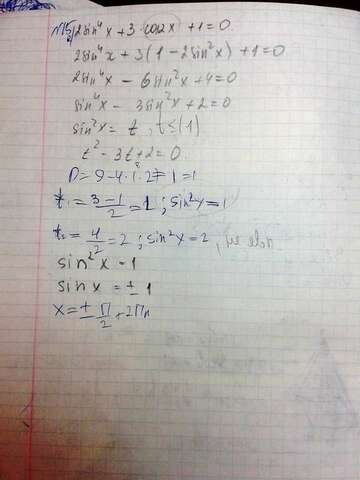 N15 2sin⁴x + 3·cos2x + 1 = 0
2sin⁴x + 3(1 - 2sin²x) + 1 = 0
2sin⁴x - 6sin²x + 4 = 0
sin⁴x - 3sin²x + 2 = 0
sin²x = t, t ≤ (1)
t² - 3t + 2 = 0
D = 9 - 4·1·2 = 1 = 1
t₁ = (3-1)/2 = 1; sin²x = 1
t₂ = 4/2 = 2; sin²x = 2, не
sin²x = 1
sinx = ± 1
x = ± П/2 + 2Пn